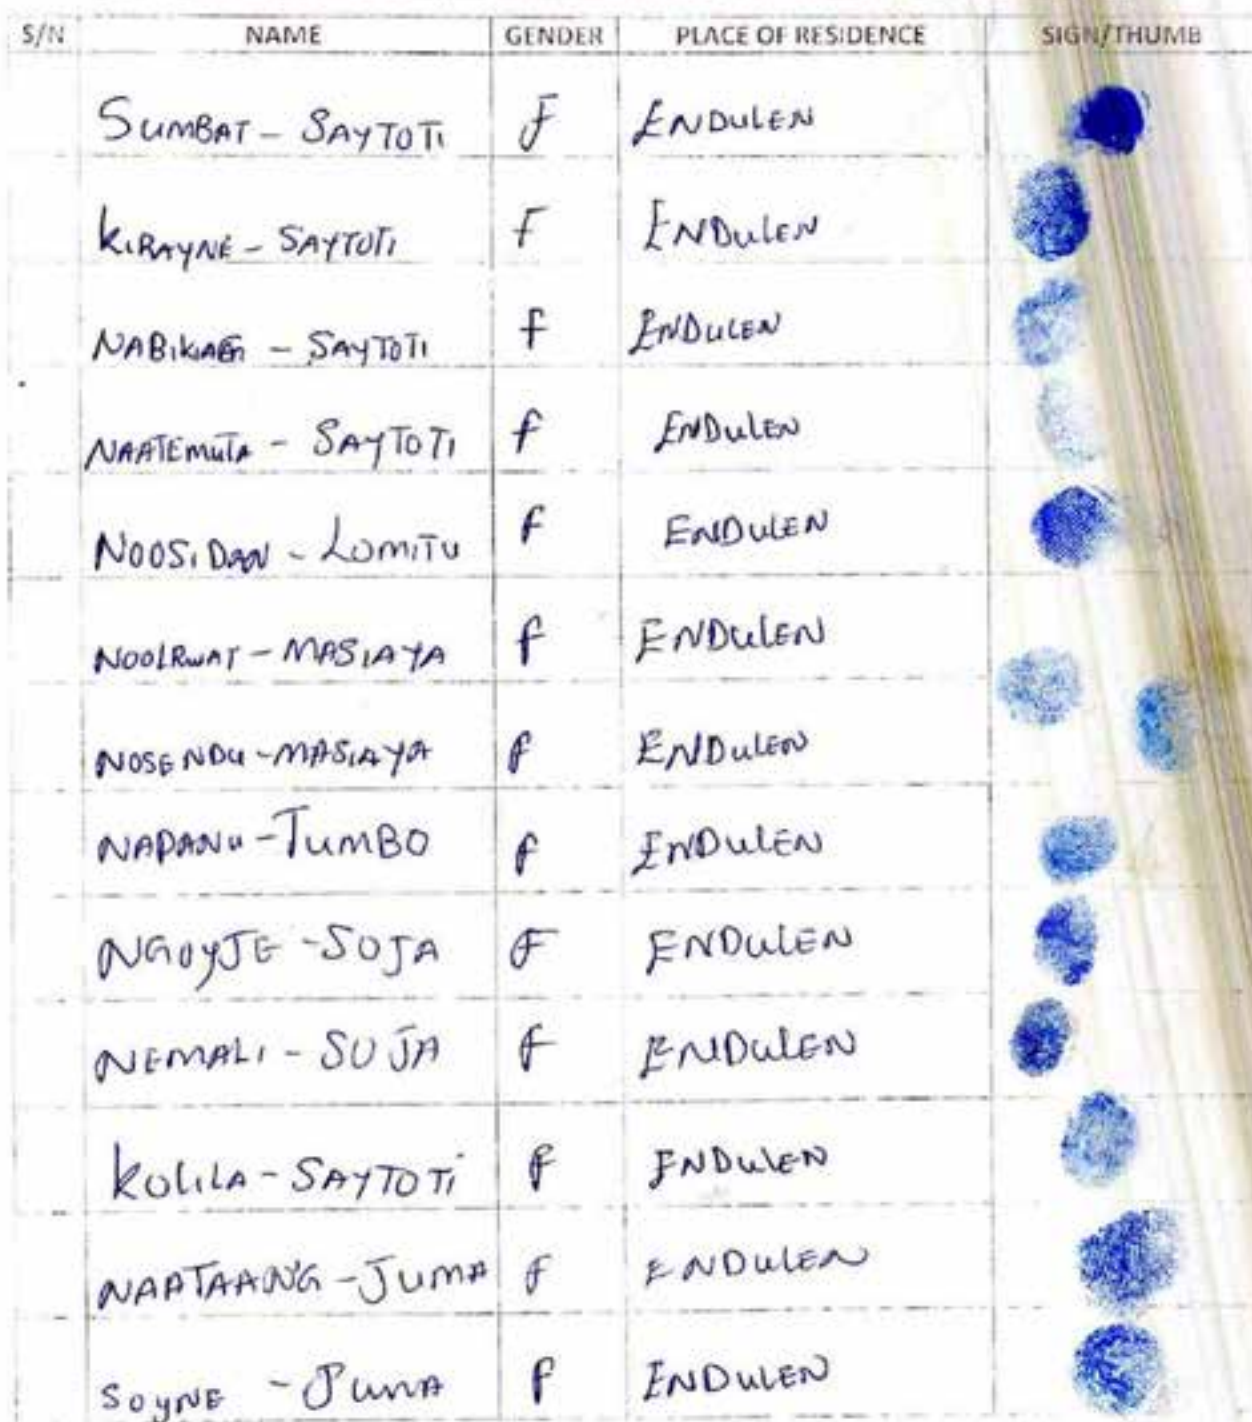 S/N NAME GENDER PLACE OF RESIDENCE SIGN/THUMB
SUMBAT - SAYTOTI F ENDULEN
KIRAYNE - SAYTOTI F ENDULEN
SAYTOTI F ENDULEN
NAATEMUTA - SAYTOTI F ENDULEN
NOOSIDAN - LOMITU F ENDULEN
NOOLRWAT - MASIAYA F ENDULEN
NOSENDU - MASIAYA F ENDULEN
NAPANU - TUMBO F ENDULEN
NGOYJE - SUJA F ENDULEN
NEMALI - SUJA F ENDULEN
KOLILA - SAYTOTI F ENDULEN
NAATAANG - JUMA F ENDULEN
SOYNE - JUMA F ENDULEN